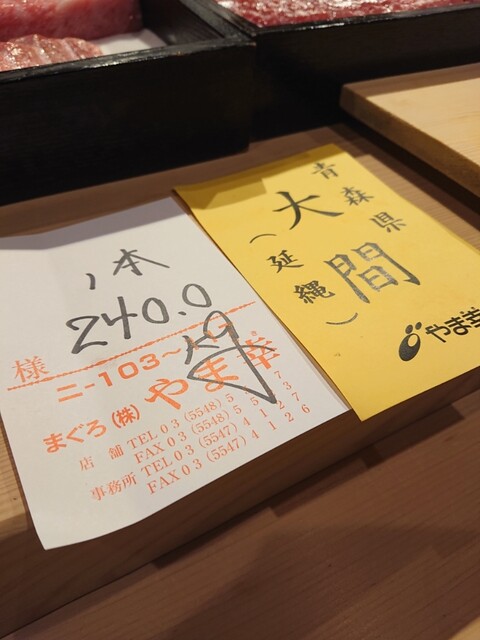 1本
240.0
様
ニ-103~
まぐろ(株)やま幸
店舗 TEL 03 (5548) 5
FAX 03 (5548) 5
事務所 TEL 03 (5547) 4127
FAX 03 (5547) 4126
青森県
大間
(延縄)
やま幸